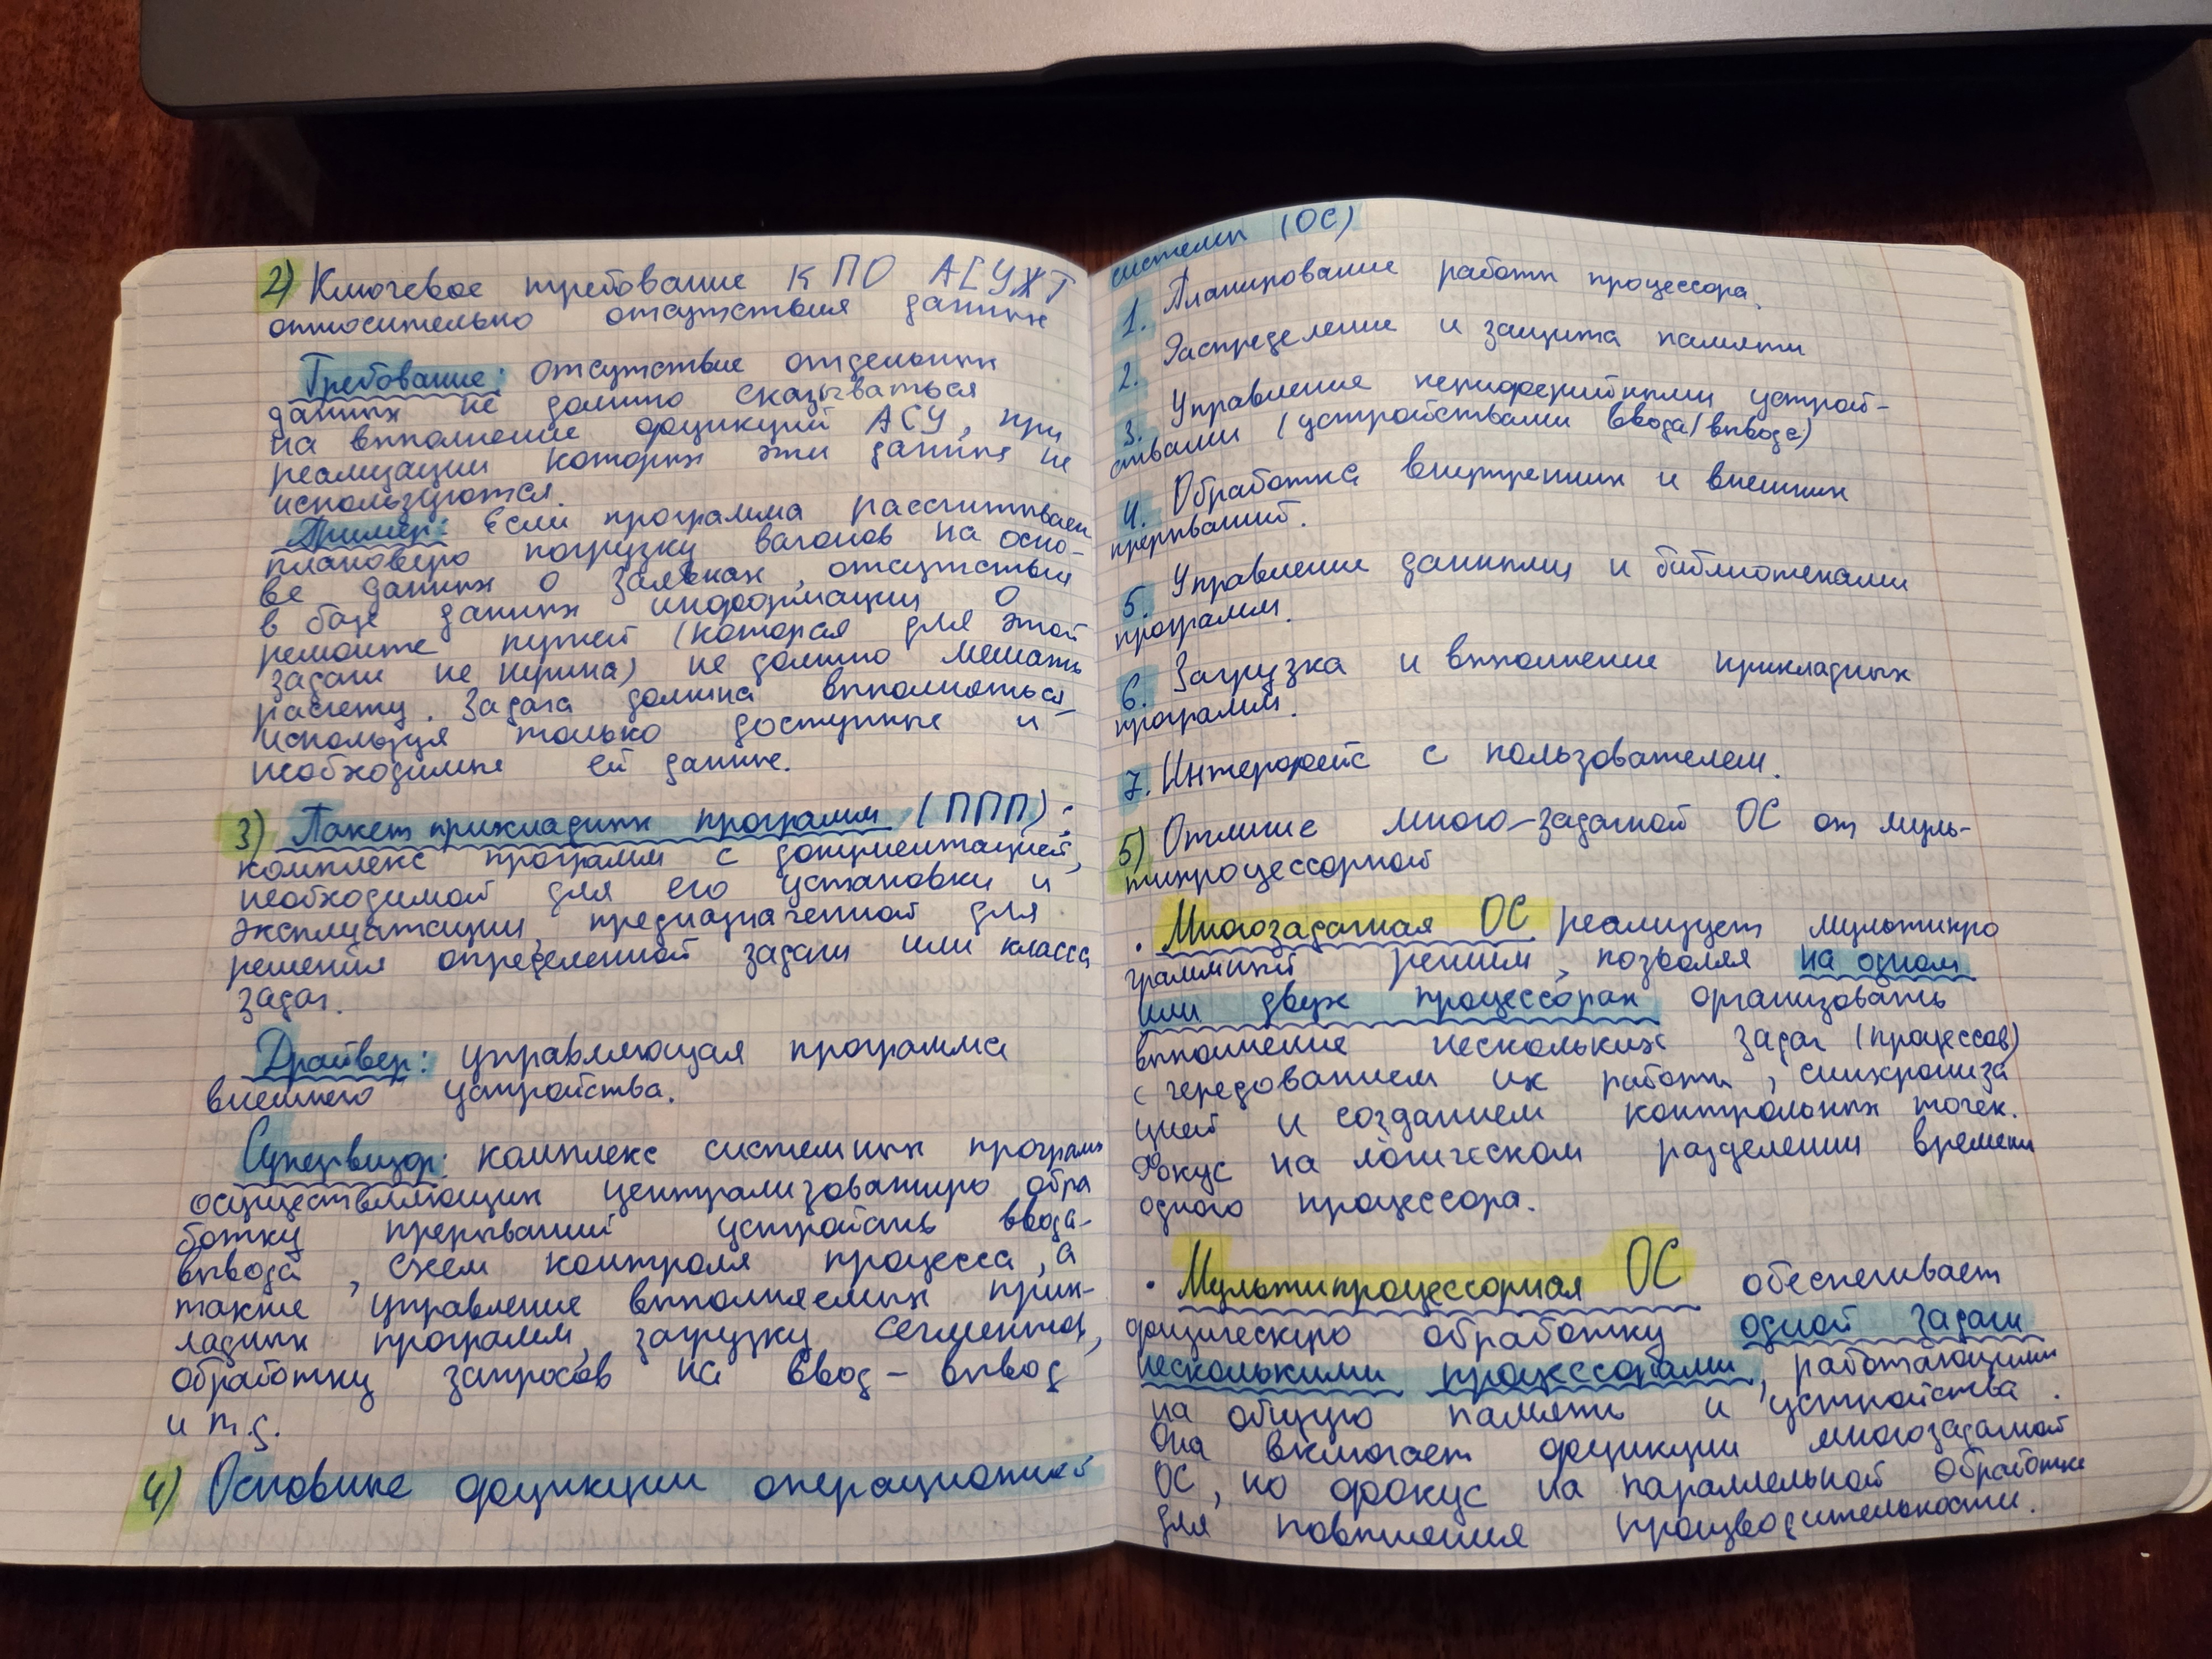 2) Ключевое требование к ПО АСУЖТ
относительно отсутствия данных
Требование: отсутствие отдельных
данных не должно сказываться
на выполнение функций АСУ, при
реализации которых эти данные не
используются.
Пример: Если программа рассчитывает
плановую погрузку вагонов на осно-
ве данных о заявках, отсутствие
в базе данных информации о
ремонте путей (которая для этой
задачи не нужна) не должно мешать
расчету. Задача должна выполняться
используя только доступные и
необходимые ей данные.
3) Пакет прикладных программ (ППП):
комплекс программ с документацией,
необходимой для его установки и
эксплуатации, предназначенной для
решения определенной задачи или класса
задач.
Драйвер: управляющая программа
внешнего устройства.
Супервизор: комплекс системных программ
осуществляющих централизованную обра
ботку прерываний устройств ввода-
вывода, схем контроля процесса, а
также управление выполняемых прик-
ладных программ, загрузку сегментов,
обработку запросов на ввод-вывод
и т.д.
4) Основные функции операционной
системы (ОС)
1. Планирование работы процессора.
2. Распределение и защита памяти
3. Управление периферийными устрой-
ствами (устройствами ввода/вывода)
4. Обработка внутренних и внешних
прерываний.
5. Управление данными и библиотеками
программ.
6. Загрузка и выполнение прикладных
программ.
7. Интерфейс с пользователем.
5) Отличие много-задачной ОС от муль-
типроцессорной
• Многозадачная ОС реализует мультипро
граммный режим, позволяя на одном
или двух процессорах организовать
выполнение нескольких задач (процессов)
с чередованием их работы, синхрониза
цией и созданием контрольных точек.
Фокус на логическом разделении времени
одного процессора.
• Мультипроцессорная ОС обеспечивает
физическую обработку одной задачи
несколькими процессорами, работающими
на общую память и устройства.
Она включает функции многозадачной
ОС, но фокус на параллельной обработке
для повышения производительности.